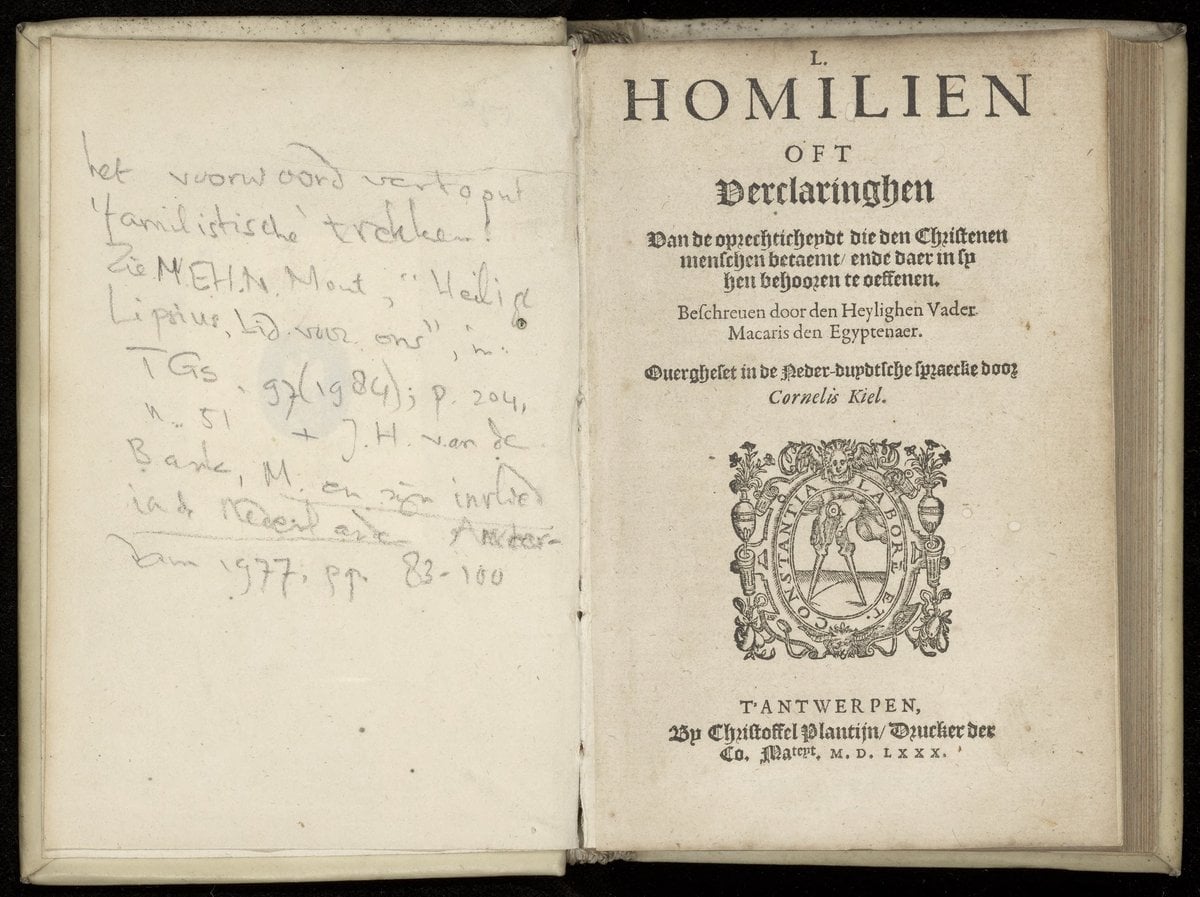 het voorwoord vertoont
'familistische' trekken!
Zie M.E.H.N. Mout, "Heilige
Lipsius, bid voor ons", in:
TGs. 97(1984); p. 204,
n. 51 + J.H. van de
Bank, M. en zijn invloed
in de Nederlanden Amster-
dam 1977, pp. 83-100
L.
HOMILIEN
OFT
Verclaringhen
Van de oprechticheydt die den Christenen
menschen betaemt/ ende daer in sy
hen behooren te oeffenen.
Beschreuen door den Heylighen Vader
Macaris den Egyptenaer.
Ouergheset in de Neder-duydtsche spraecke door
Cornelis Kiel.
CONSTANTIA LABORE ET
T'ANTWERPEN,
By Christoffel Plantijn/ Drucker der
Co. Mateyt. M. D. LXXX.